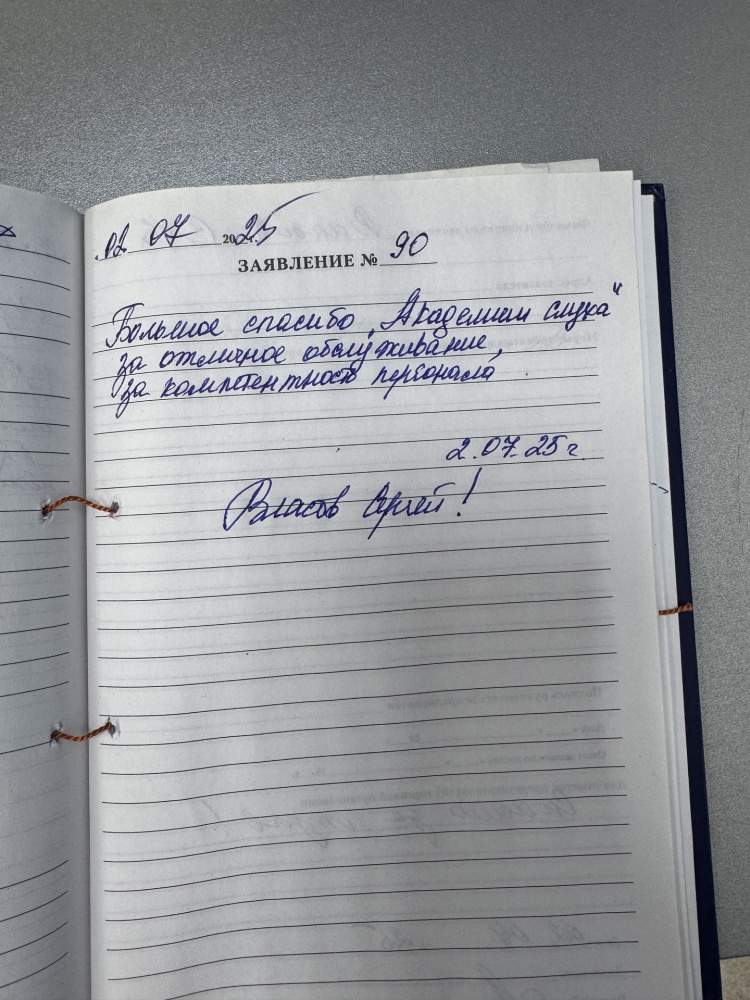 02 07 2025 г.
ЗАЯВЛЕНИЕ № 90
Большое спасибо „Академии слуха"
за отличное обслуживание,
за компетентность персонала
2.07.25 г.
Власов Сергей!